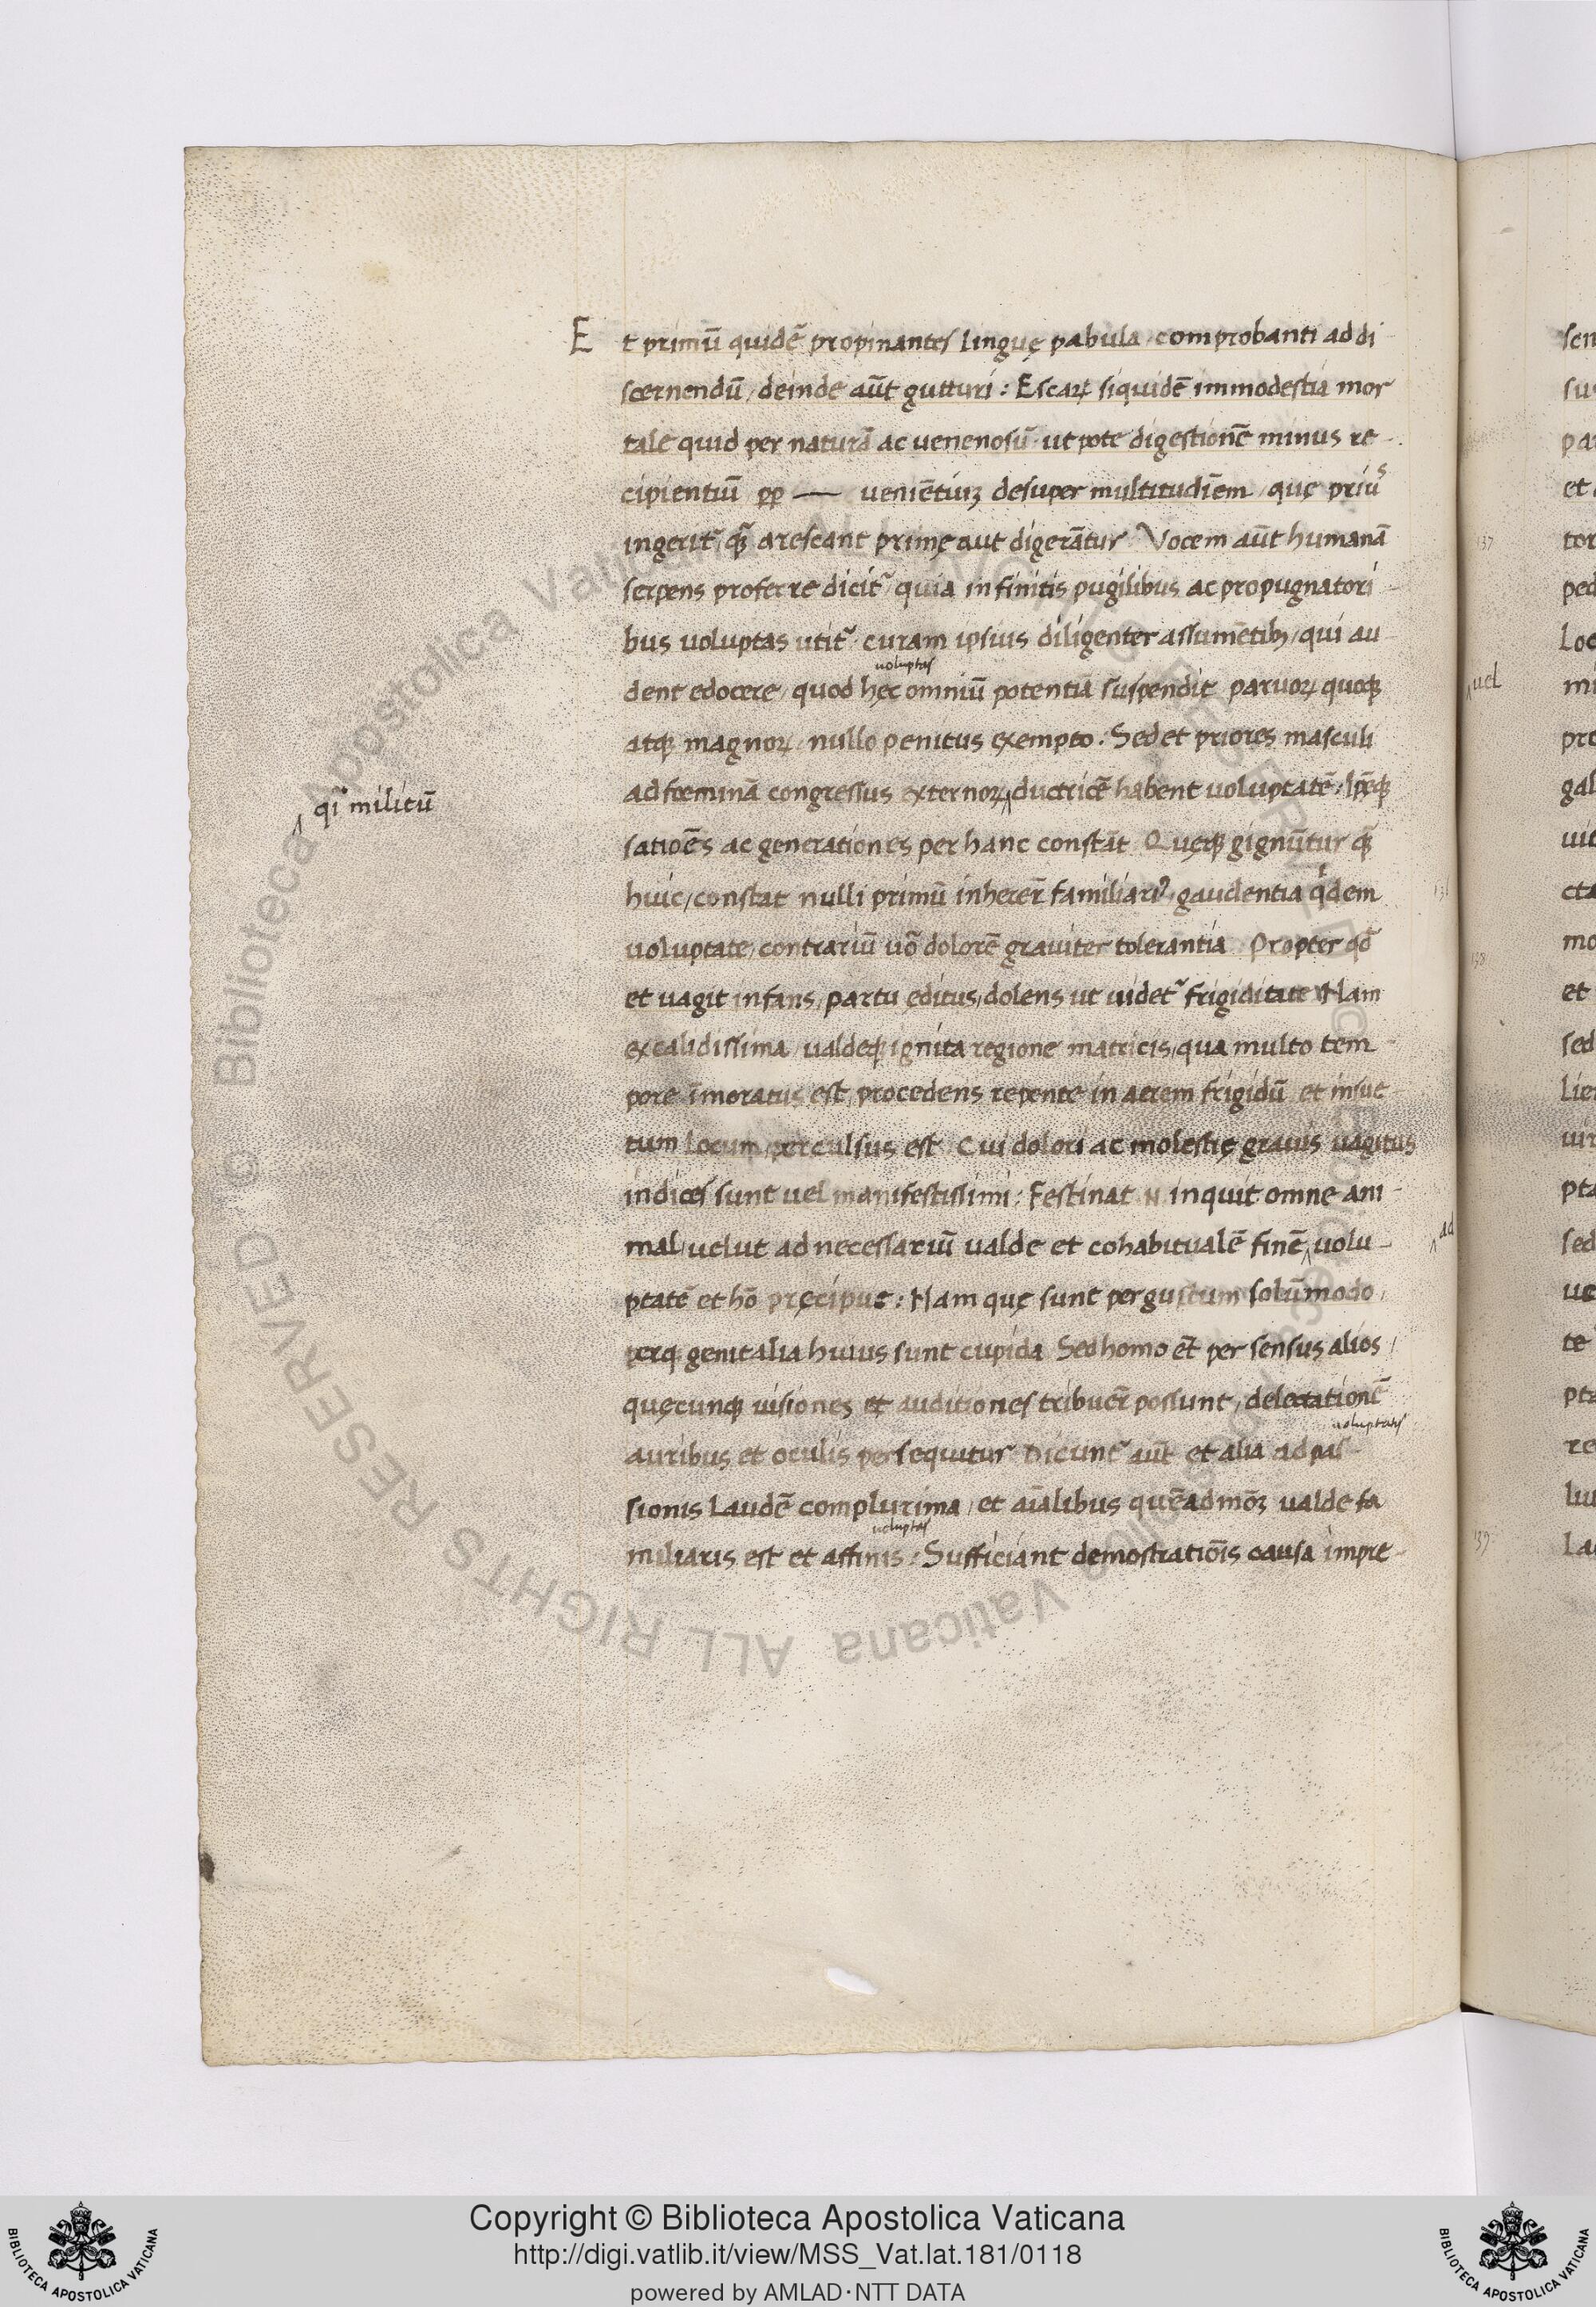 Et primū quidē propinantes linguę pabula comprobanti ad di
scernendū / deinde aūt gutturi : Escaꝝ siquidē immodestia mor
tale quid per naturā ac uenenosū ut pote digestionē minus re-
cipientiū ꝓꝑ — ueniētiūꝫ desuper multitudīem / quę priꝰ
ingerit᷑ / qꝫ̄ arescant primę aut digerātur Vocem aūt humanā
serpens proferre dicit᷑ / quia infinitis pugilibus ac propugnatori
bus uoluptas utit᷑ curam ipsius diligenter assumētibꝫ / qui au
dent edocere / quod hęc omniū potentiā suspendit paruoꝝ quoqꝫ
uoluptas
atqꝫ magnoꝝ / nullo penitus exempto : Sed et priores masculi
ad fœminā congressus externoꝝ ductricē habent uoluptatē : Ipēqꝫ
qͥ militū
satioēs ac generationes per hanc constāt Quęqꝫ gignūtur qꝫ̄
huic / constat nulli primū inherer̄ familiariꝰ / gaudentia qͥdem
uoluptate / contrariū uō dolorē grauiter tolerantia Propter qđ
et uagit infans / partu ęditus / dolens ut uidet᷑ frigiditate Nam
ex calidissima / ualdeqꝫ ignita regione matricis / qua multo tem
pore īmoratus est / procedens repente in aerem frigidū et insue
tum locum / perculsus est Cui dolori ac molestię grauis uagitus
indices sunt uel manifestissimi : Festinat N inquit omne ani-
mal / uelut ad necessariū ualde et cohabitualē finē uolu-
ad
ptatē et hō pręcipue : Nam quę sunt per gustum solūmodo /
perqꝫ genitalia huius sunt cupida Sed homo et̄ per sensus alios /
quęcunqꝫ uisiones et auditiones tribuer̄ possunt / delectationē
auribus et oculis persequitur Dicunt᷑ aūt et alia ad pas-
uoluptatis
sionis laudē complurima / et aīalibus quēadmōꝫ ualde fa
miliaris est et affinis : Sufficiant demostratiōis causa impre-
uoluptas
137
uel
131
138
139
Copyright © Biblioteca Apostolica Vaticana
http://digi.vatlib.it/view/MSS_Vat.lat.181/0118
powered by AMLAD·NTT DATA
BIBLIOTECA APOSTOLICA VATICANA
BIBLIOTECA APOSTOLICA VATICANA
© Biblioteca Apostolica Vaticana ALL RIGHTS RESERVED
© Biblioteca Apostolica Vaticana ALL RIGHTS RESERVED